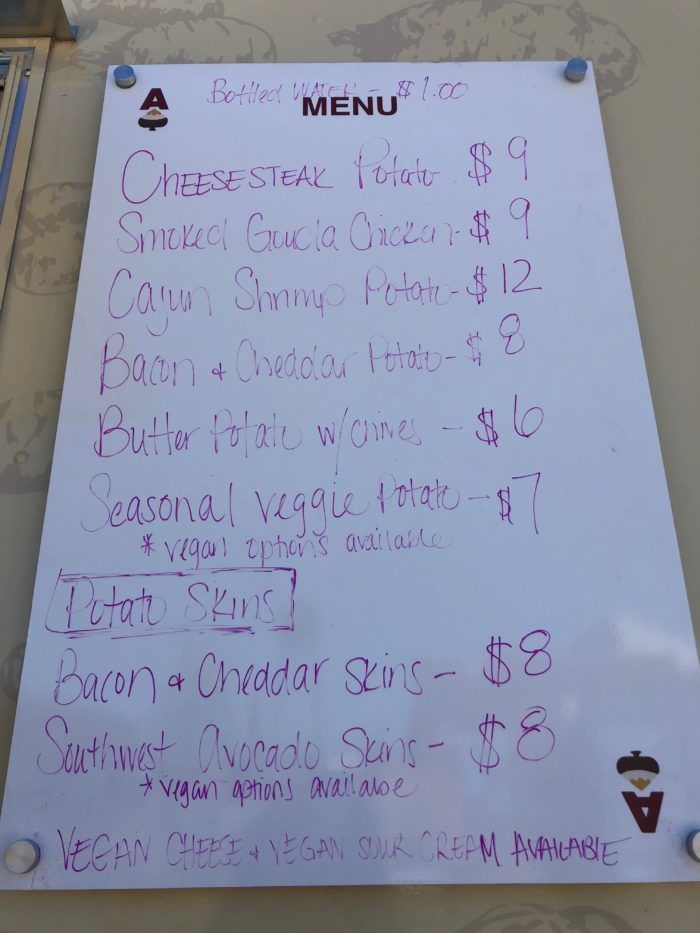 Bottled WATER - $1.00
MENU
CHEESESTEAK Potato $9
Smoked Gouda Chicken - $9
Cajun Shrimp Potato - $12
Bacon + Cheddar Potato - $8
Butter Potato w/chives - $6
Seasonal veggie Potato - $7
* vegan options available
Potato Skins
Bacon + Cheddar Skins - $8
Southwest Avocado Skins - $8
* vegan options available
VEGAN CHEESE + VEGAN SOUR CREAM AVAILABLE
A
A